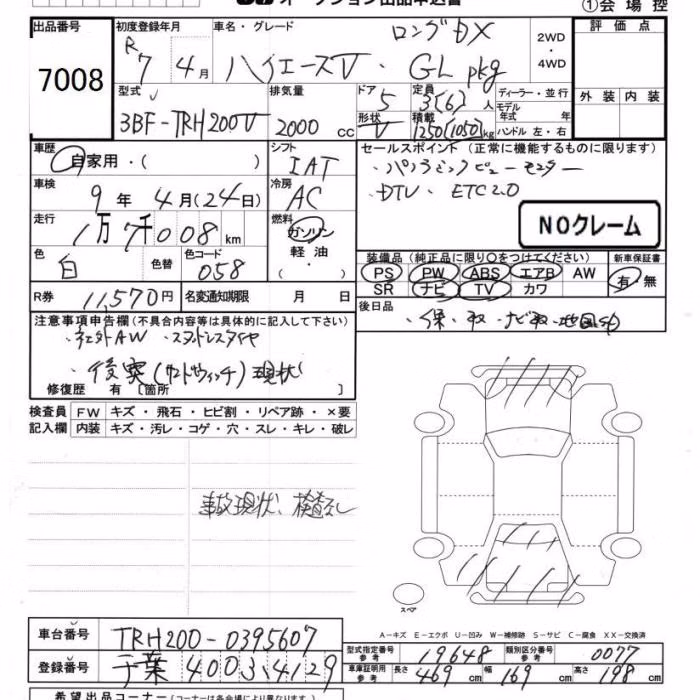 オークション出品申込書 ①会場控
出品番号 7008
初度登録年月 R7年 4月
車名・グレード ロングDX
ハイエースV ・ GL pkg
2WD ・ 4WD
評価点
外装 内装
型式 3BF-TRH200V
排気量 2000 cc
ドア 5
形状 V
定員 3(6)人
積載 1250(1050)kg
ディーラー・並行
モデル年式 年
ハンドル 左・右
車歴 自家用・( )
シフト IAT
車検 9年 4月(24日)
冷房 AC
走行 1万7千008km
燃料 ガソリン
軽油
・( )
色 白 色替 色コード 058
R券 11,570円 名変通知期限 月 日
セールスポイント (正常に機能するものに限ります)
・パノラミックビューモニター
・DTV ・ETC2.0
NOクレーム
装備品 (純正品に限り○をつけてください) 新車保証書
PS PW ABS エアB AW 有・無
SR ナビ TV カワ
後日品
・保・取・ナビ取・地図SD
注意事項申告欄(不具合内容等は具体的に記入して下さい)
・社外AW ・スタッドレスタイヤ
・後突(サンドウィッチ)現状
修復歴 有 〔箇所 〕
検査員 FW キズ・飛石・ヒビ割・リペア跡・×要
記入欄 内装 キズ・汚レ・コゲ・穴・スレ・キレ・破レ
事故現状、検査なし
スペア
A-キズ E-エクボ U-凹み W-補修跡 S-サビ C-腐食 XX-交換済
車台番号 TRH200-0395607
登録番号 千葉 400 34129
型式指定番号 参考 19648 類別区分番号 参考 0077
車庫証明用 参考 長さ 469cm 幅 169cm 高さ 198cm
希望出品コーナー(コーナーは各会場により異なります)